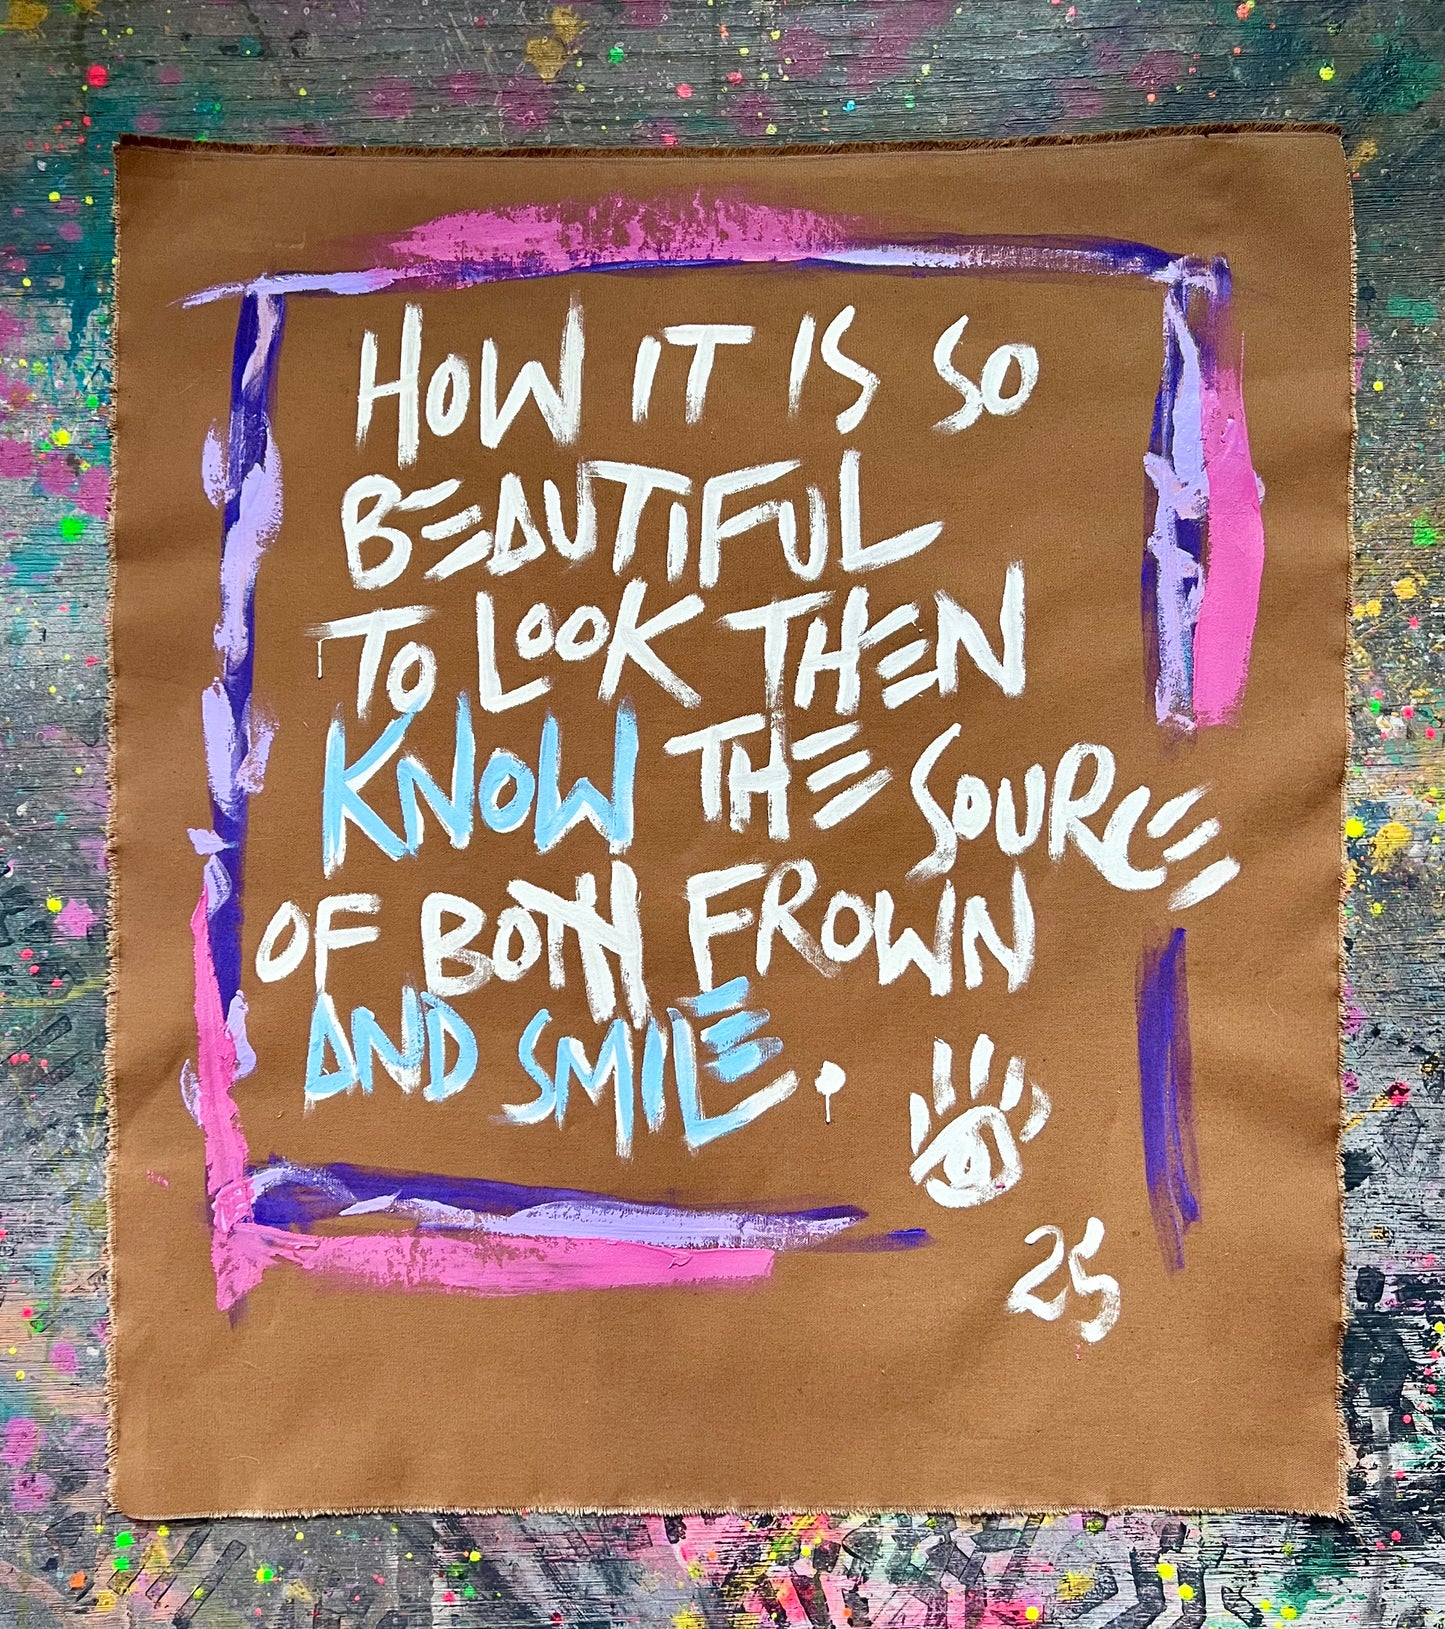 HOW IT IS SO
BEAUTIFUL
TO LOOK THEN
KNOW THE SOURCE
OF BOTH FROWN
AND SMILE.
25